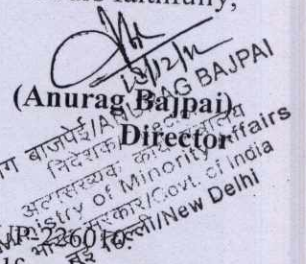 faithfully,
18/12/12
(Anurag Bajpai)
Director
बाजपेई/ANURAG BAJPAI
निदेशक/Director
अल्पसंख्यक कार्य मंत्रालय
Ministry of Minority Affairs
भारत सरकार/Govt. of India
नई दिल्ली/New Delhi
UP-226010.